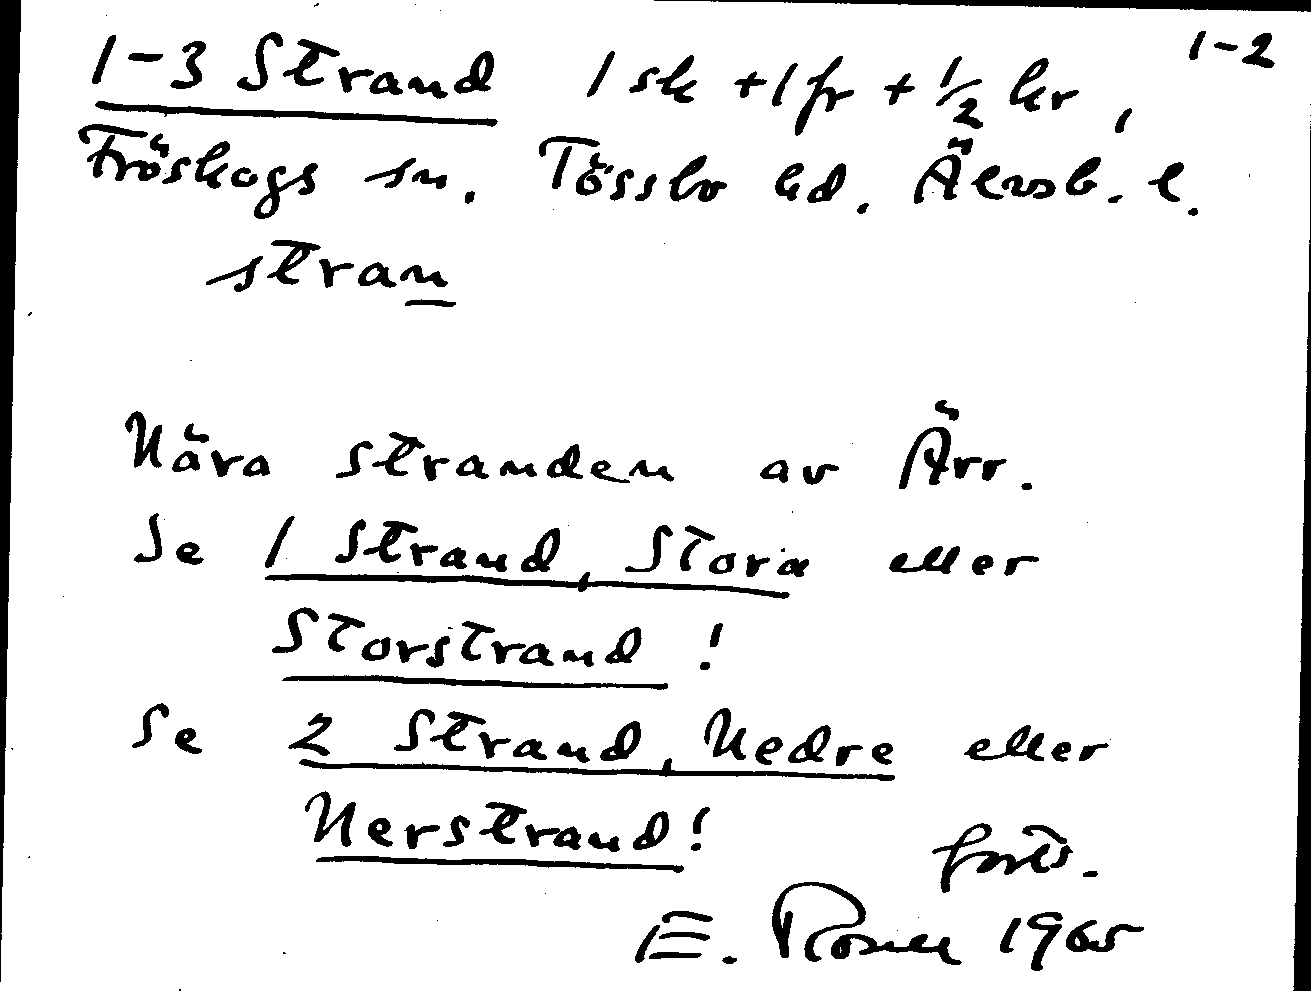 1-2
1-3 Strand 1 sk + 1 fr + 1/2 kr,
Fröskogs sn. Tössbo hd. Älvsb. l.
stran
Nära stranden av Ärr.
Se 1 Strand, Stora eller
Storstrand!
Se 2 Strand, Nedre eller
Nerstrand!
forts.
E. Rosell 1965